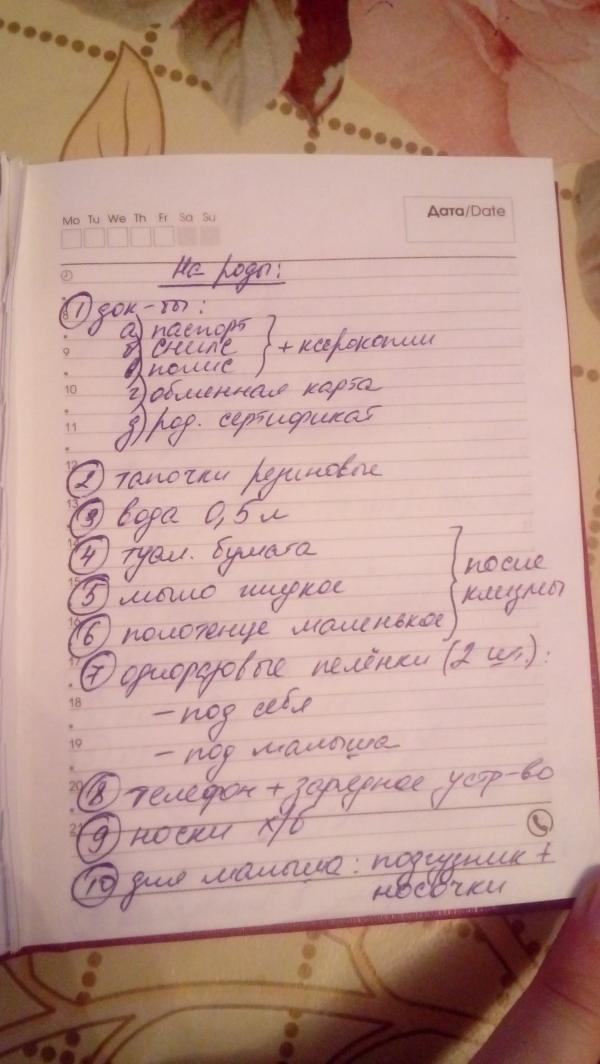 Mo Tu We Th Fr Sa Su
Дата/Date
На роды:
1 док-ты:
8
а) паспорт
б) снилс
9
в) полис
} + ксерокопии
10
г) обменная карта
11
д) род. сертификат
12
2 тапочки резиновые
13
3 вода 0,5 л
14
4 туал. бумага
15
5 мыло жидкое
16
6 полотенце маленькое
} после
клизмы
17
7 одноразовые пелёнки (2 шт.):
18
– под себя
19
– под малыша
20
8 телефон + зарядное устр-во
21
9 носки х/б
10 для малыша: подгузник +
носочки